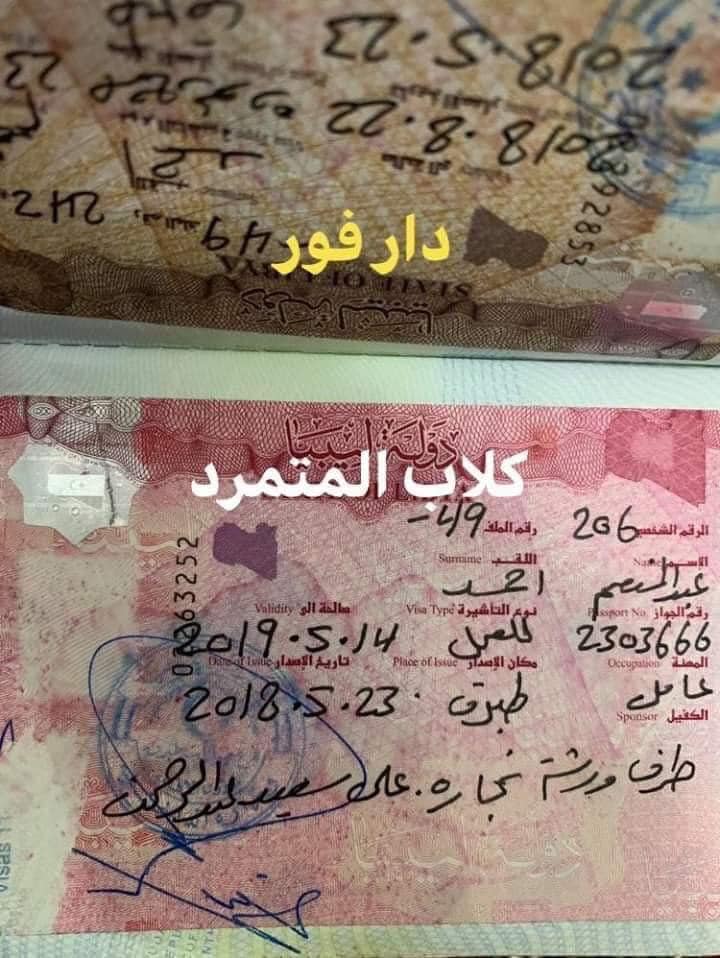 2018.5.23
2018.8.22
292853
242.
49
دار فور
STATE OF LIBYA
دولة ليبيا
دولة ليبيا
كلاب المتمرد
الرقم الشخصي 206 رقم الملف 49-
الاسم Name اللقب Surname
عبدالمنعم احمد
رقم الجواز Passport No. نوع التأشيرة Visa Type صالحة الى Validity
2303666 للعمل 2019.5.14
المهنة Occupation مكان الإصدار Place of Issue تاريخ الإصدار Date of Issue
عامل طبرق 2018.5.23
الكفيل Sponsor
طرف ورشة نجاره. على سعيد عبدالرحمن
63252
Visas